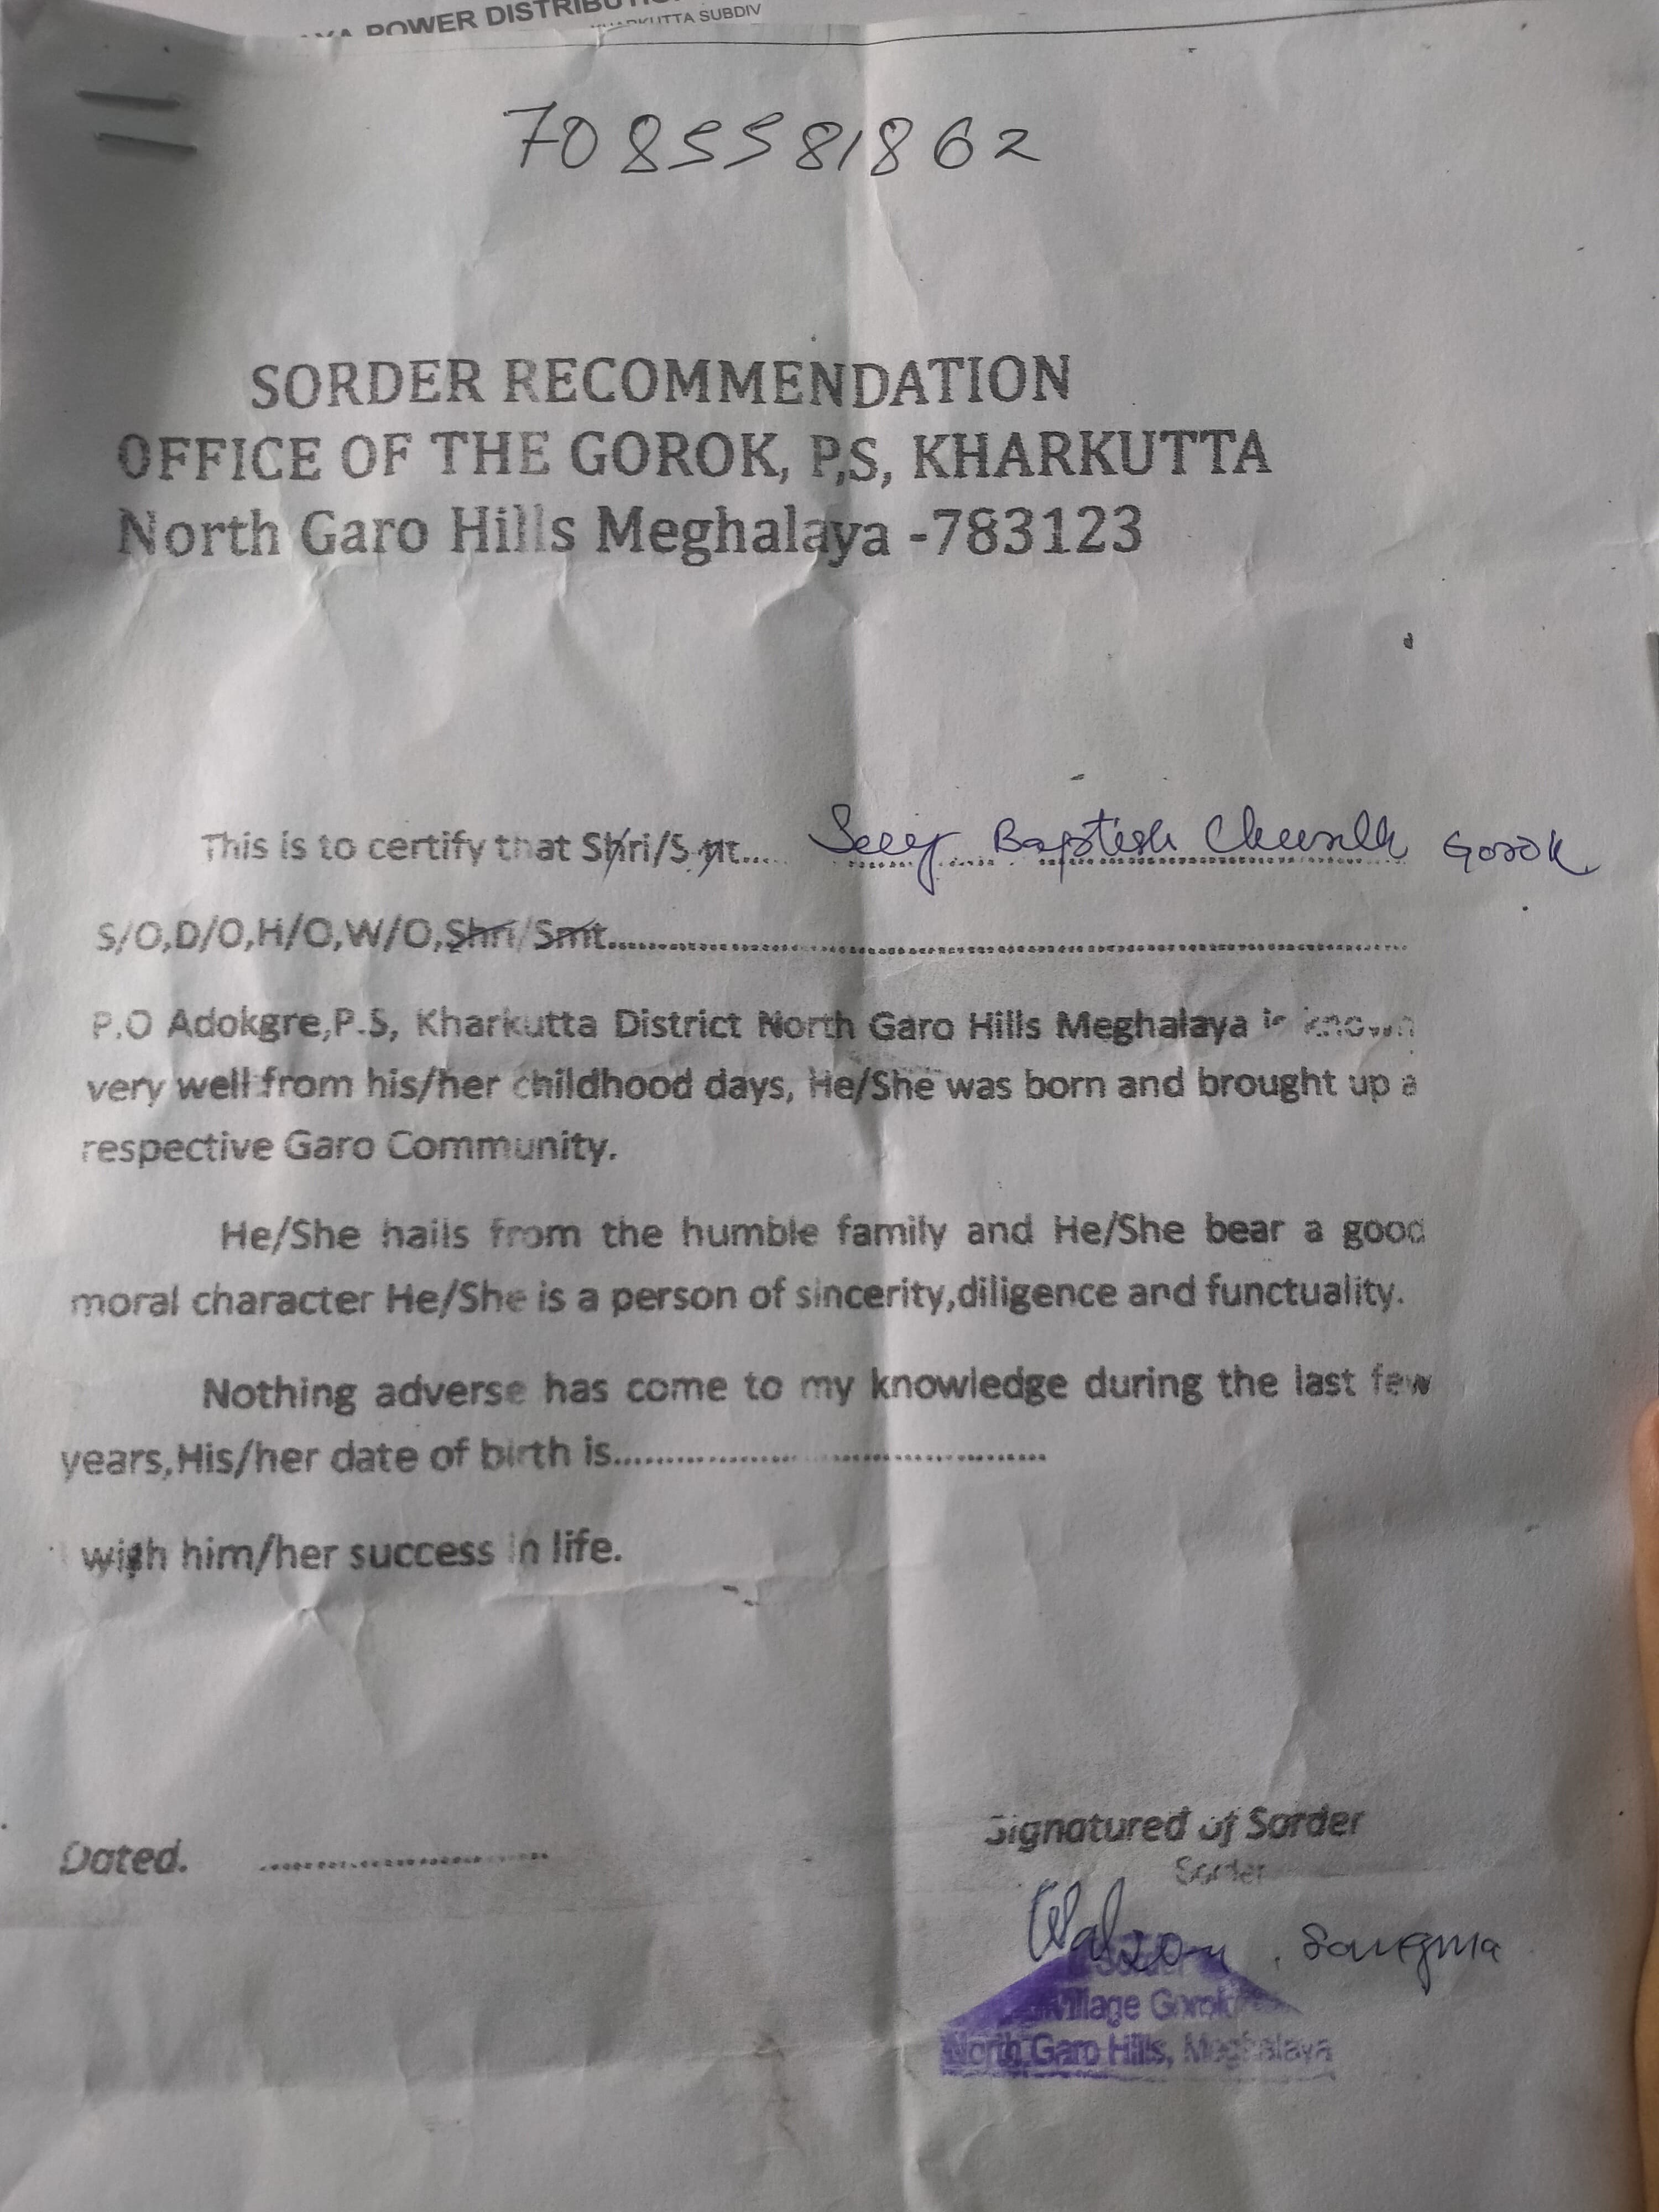 POWER DISTRIBUTI
KHARKUTTA SUBDIV
7085581862
SORDER RECOMMENDATION
OFFICE OF THE GOROK, P,S, KHARKUTTA
North Garo Hills Meghalaya -783123
This is to certify that Shri/Smt.... Baptish Gorok
S/O,D/O,H/O,W/O,Shri/Smt..........
P.O Adokgre,P.S, Kharkutta District North Garo Hills Meghalaya is known
very well from his/her childhood days, He/She was born and brought up a
respective Garo Community.
He/She hails from the humble family and He/She bear a good
moral character He/She is a person of sincerity,diligence and functuality.
Nothing adverse has come to my knowledge during the last few
years,His/her date of birth is..........
wish him/her success in life.
Dated. ..........
Signatured of Sorder
Sorder
Walson. Sangma
Sorder
Village Gorok
North Garo Hills, Meghalaya